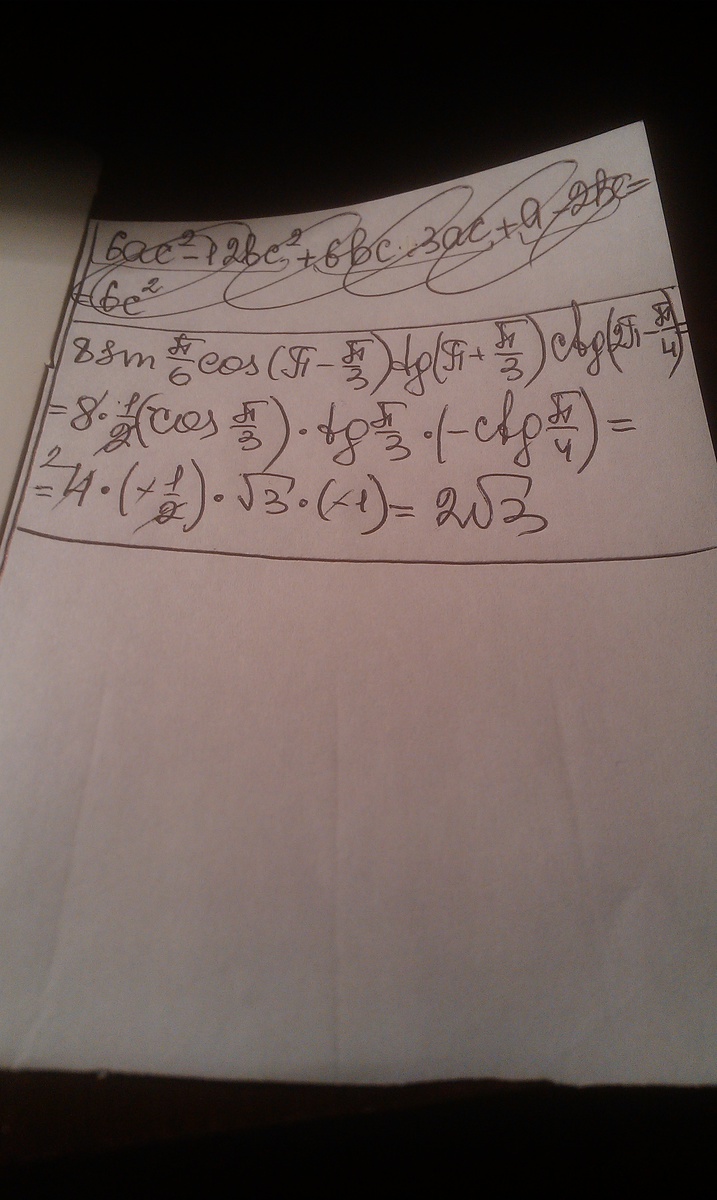 6ac² - 12bc² + 6bc - 3ac + a - 2bc =
= 6c²
8 sin π/6 cos (π - π/3) tg (π + π/3) ctg (2π - π/4) =
= 8 · 1/2 (-cos π/3) · tg π/3 · (-ctg π/4) =
= 4 · (-1/2) · √3 · (-1) = 2√3